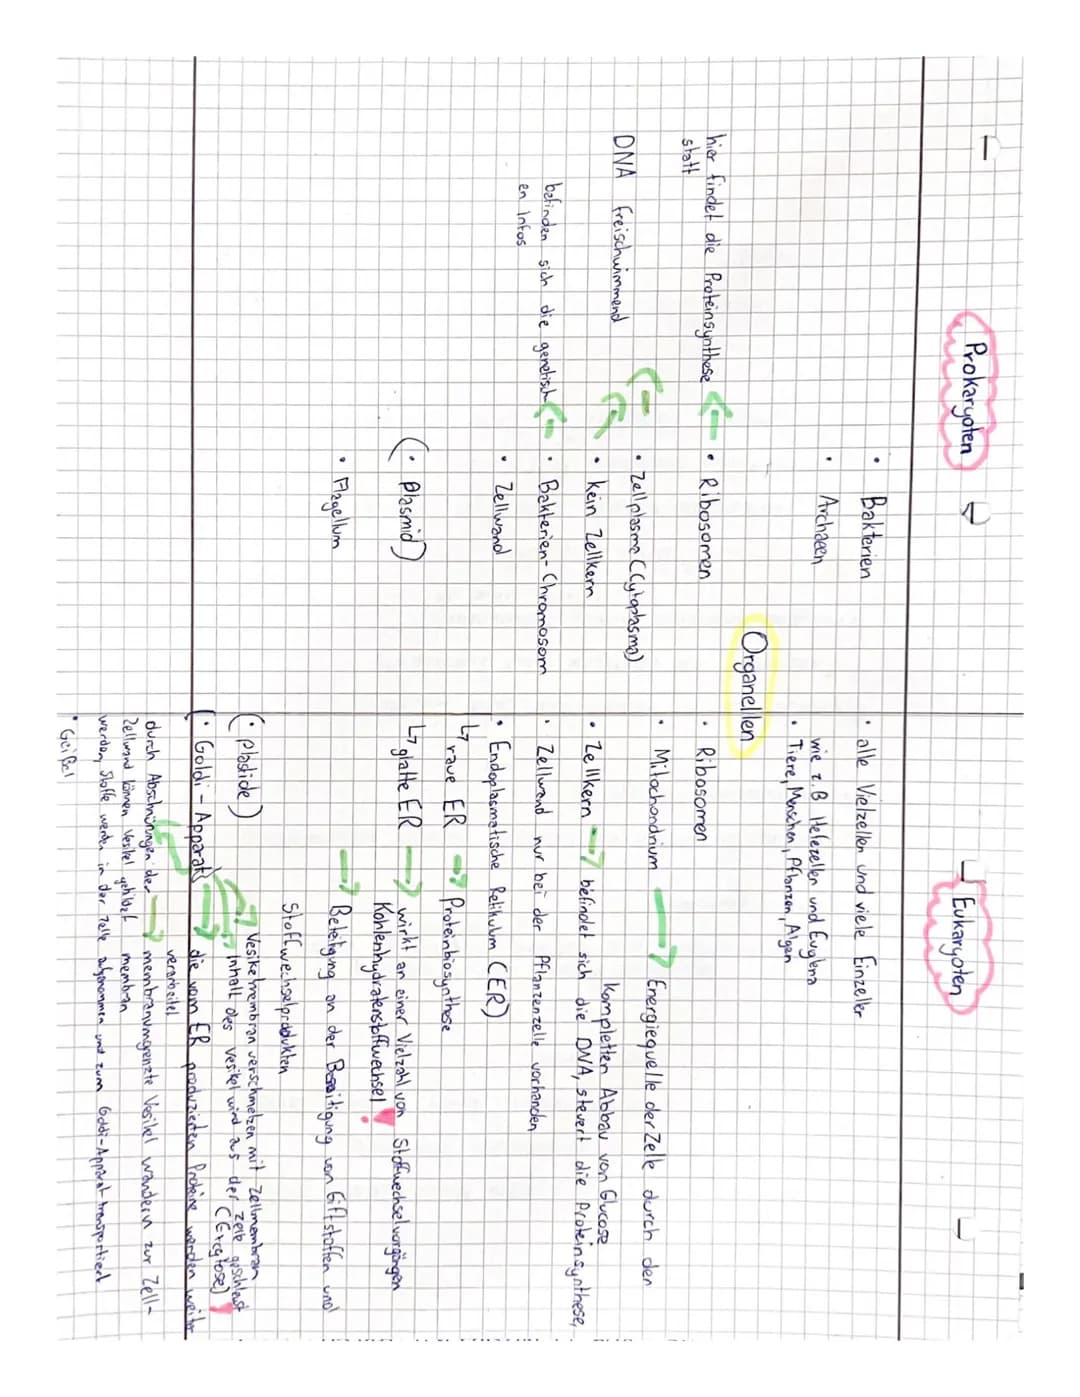 Prokaryoten
Eukaryoten
• Bakterien
• Archaeen
• alle Vielzellen und viele Einzeller
wie z.B Hefezellen und Euglena
• Tiere, Menschen, Pflanzen, Algen
Organellen
• Ribosomen
hier findet die Proteinsynthese
statt
• Zellplasma (Cytoplasma)
• kein Zellkern
DNA freischwimmend
• Bakterien-Chromosom
befinden sich die genetisch
en Infos
• Zellwand
(• Plasmid)
• Flagellum
• Ribosomen
• Mitochondrium → Energiequelle der Zelle durch den
kompletten Abbau von Glucose
• Zellkern → befindet sich die DNA, steuert die Proteinsynthese,
• Zellwand nur bei der Pflanzenzelle vorhanden
• Endoplasmatische Retikulum (ER)
↳ raue ER → Proteinbiosynthese
↳ glatte ER → wirkt an einer Vielzahl von Stoffwechselvorgängen
Kohlenhydratenstoffwechsel!
→ Beteiligung an der Beseitigung von Giftstoffen und
Stoffwechselprodukten
(• Plastide)
→ Vesikelmembran verschmelzen mit Zellmembran
→ Inhalt des Vesikel wird aus der Zelle
!
(• Goldi-Apparat) → die vom ER produzierten Proteine werden weiter
verarbeitet
durch Abschnürungen der → membranumgrenzte Vesikel wandern zur Zell-
Zellwand können Vesikel gebildet membran
werden, Stoffe werden in der Zelle aufgenommen und zum Goldi-Apparat transportiert
• Geißel